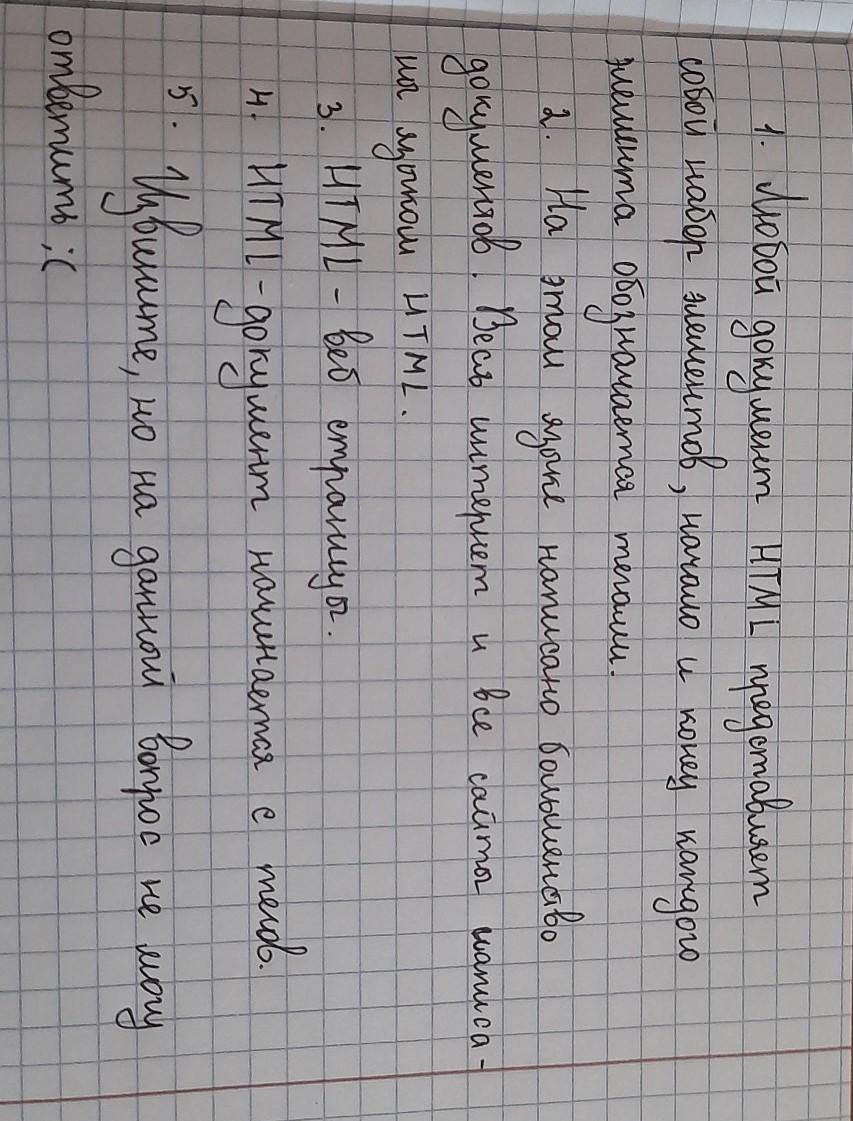 1. Любой документ HTML представляет
собой набор элементов, начало и конец каждого
элемента обозначается тегами.
2. На этом языке написано большинство
документов. Весь интернет и все сайты написа-
ны языком HTML.
3. HTML - веб страницы.
4. HTML-документ начинается с тегов.
5. Извините, но на данной вопрос не могу
ответить ;(